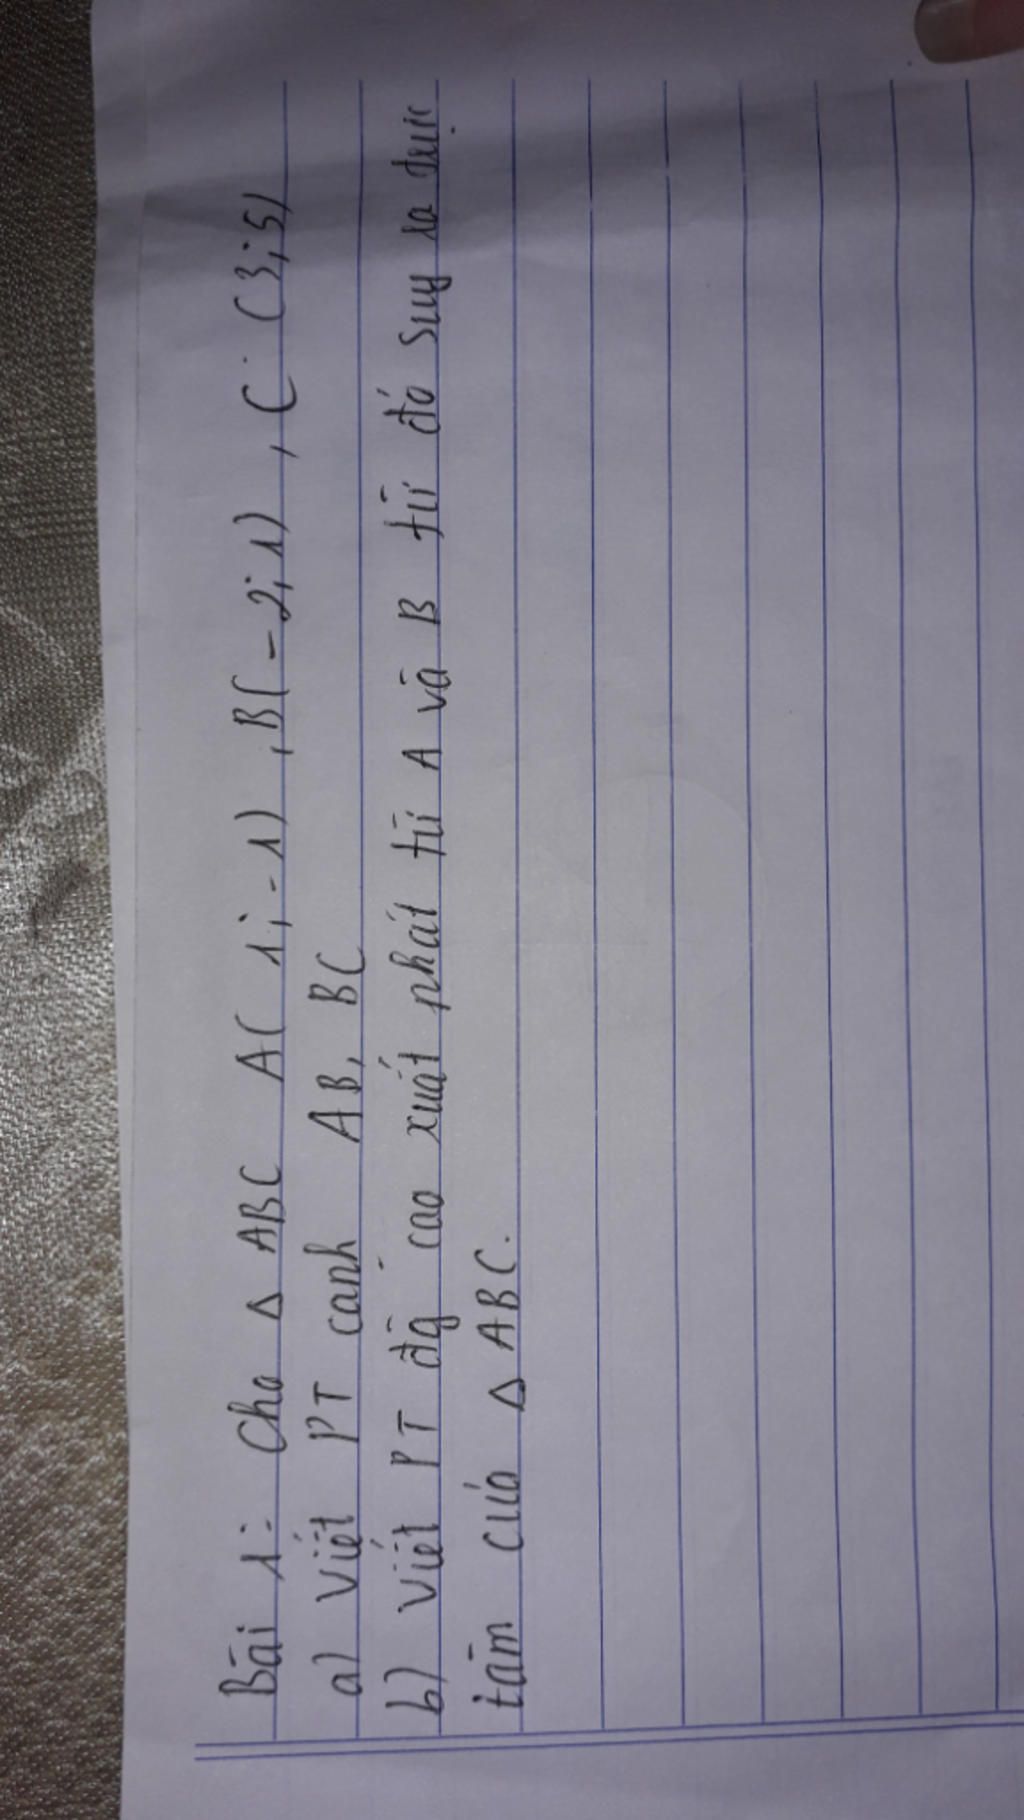 Bài 1: Cho Δ ABC A( 1; -1) , B( -2; 1) , C ( 3; 5)
a) Viết PT cạnh AB, BC
b) Viết PT đg cao xuất phát từ A và B từ đó suy ra trực
tâm của Δ ABC.